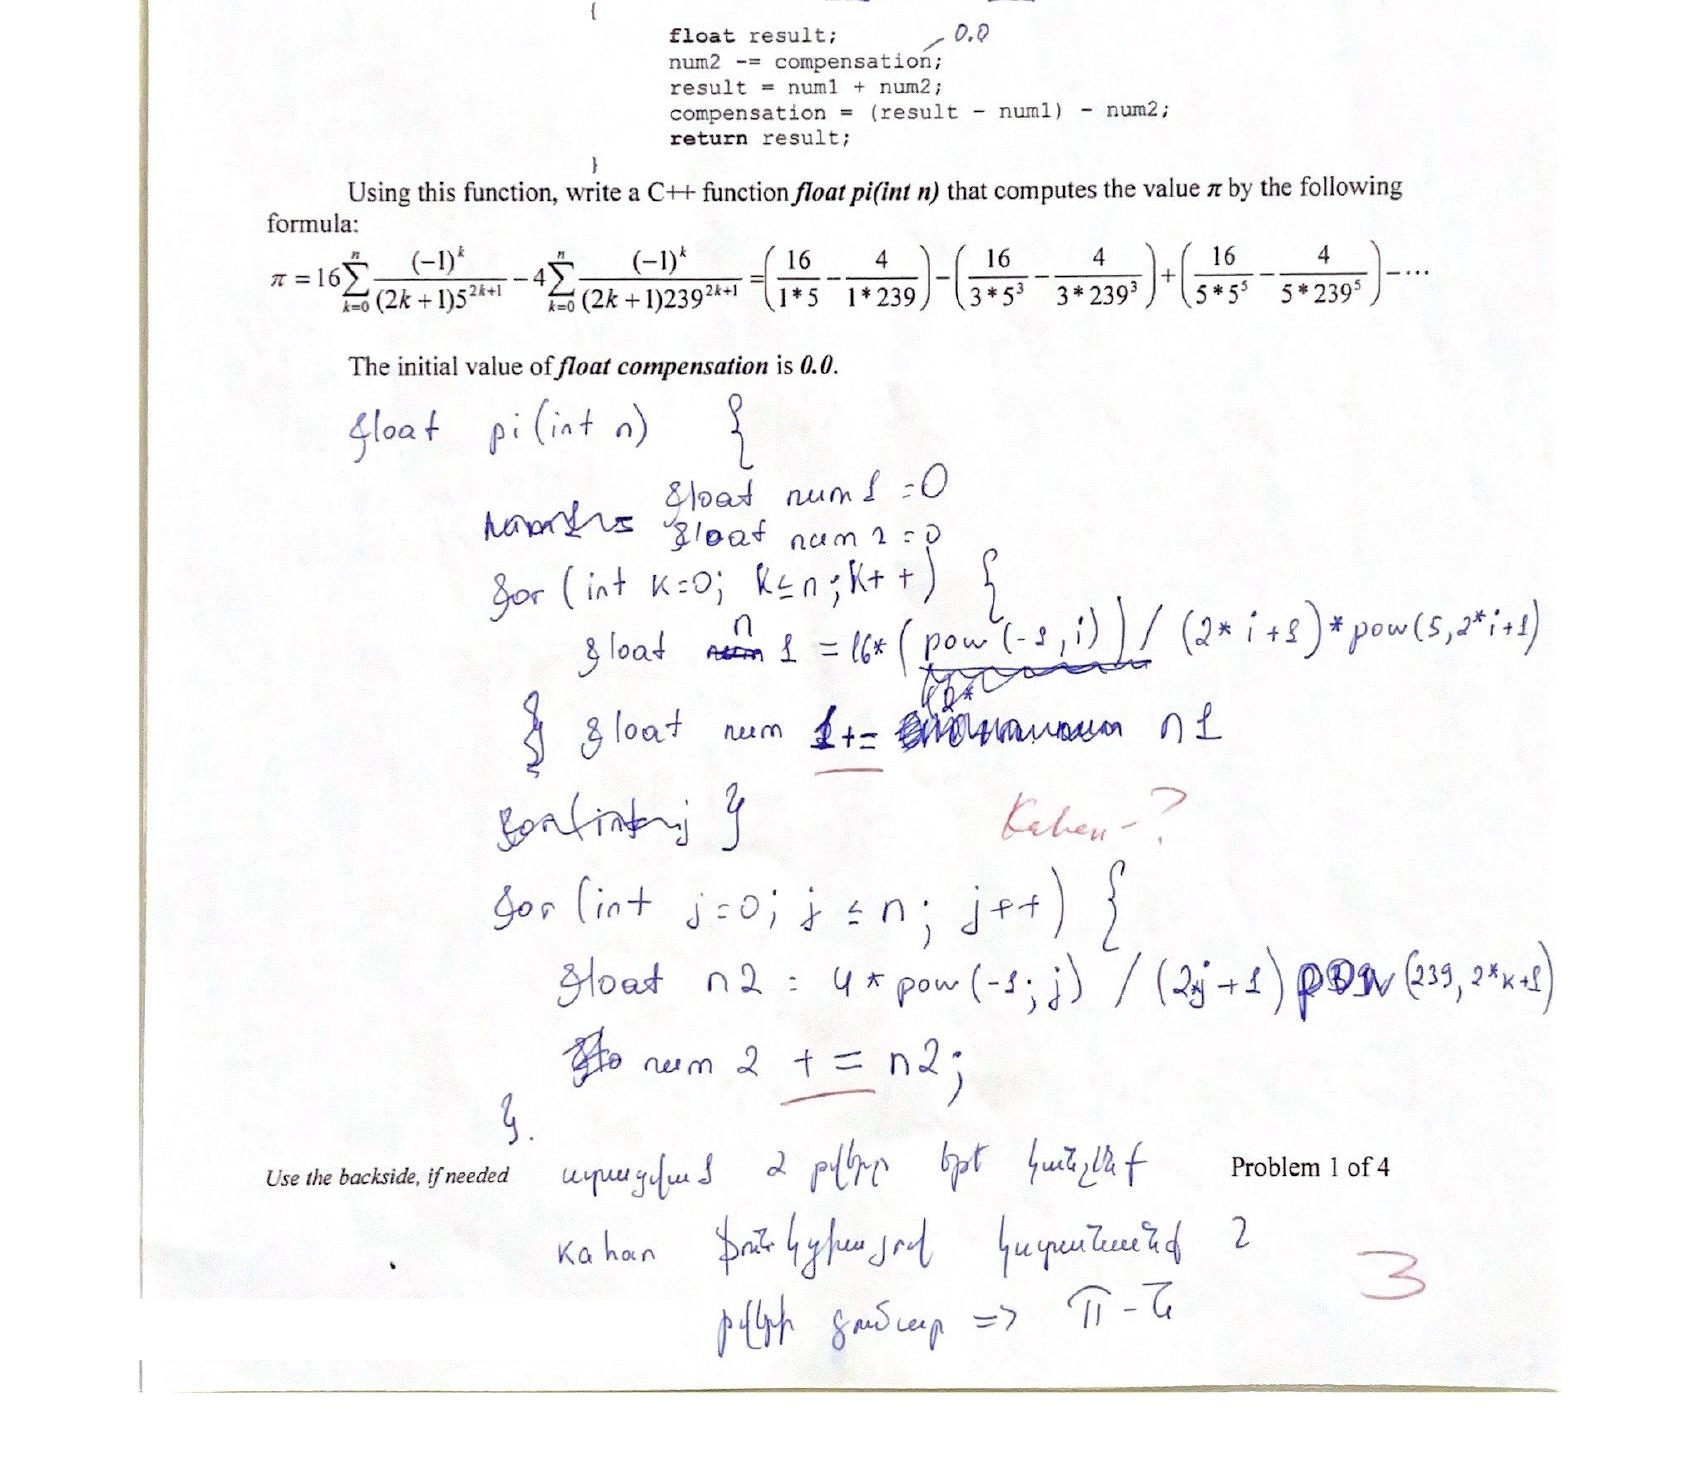 {
float result;
0.0
num2 -= compensation;
result = num1 + num2;
compensation = (result - num1) - num2;
return result;
}
Using this function, write a C++ function float pi(int n) that computes the value π by the following
formula:
π = 16 ∑_{k=0}^{n} (-1)^k / ((2k+1)5^{2k+1}) - 4 ∑_{k=0}^{n} (-1)^k / ((2k+1)239^{2k+1}) = (16/(1*5) - 4/(1*239)) - (16/(3*5^3) - 4/(3*239^3)) + (16/(5*5^5) - 4/(5*239^5)) - ...
The initial value of float compensation is 0.0.
float pi(int n) {
float num1=0
float num2=0
for (int k=0; k≤n; k++) {
float n1 = 16*(pow(-1,i))/(2*i+1)*pow(5,2*i+1)
} float num 1+= n1
}
Kahan-?
for (int j=0; j≤n; j++) {
float n2 = 4*pow(-1;j)/(2*j+1) pow(239, 2*k+1)
num 2 += n2;
}.
Use the backside, if needed
ստացված 2 թվերը երբ կանչենք
Problem 1 of 4
Kahan ֆունկցիայով կստանանք 2
թվերի գումար => π-ն
3